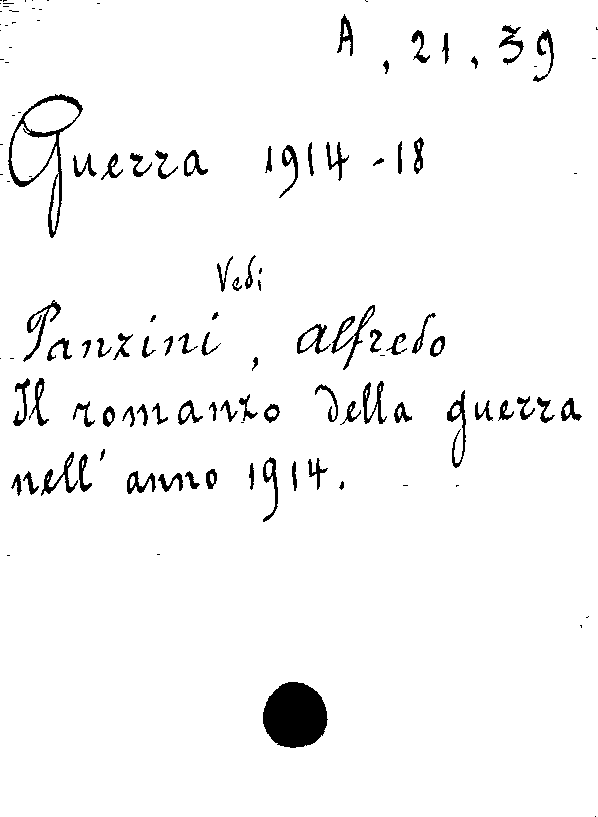 A, 21, 39
Guerra 1914-18
Vedi
Panzini, Alfredo
Il romanzo della guerra
nell'anno 1914.